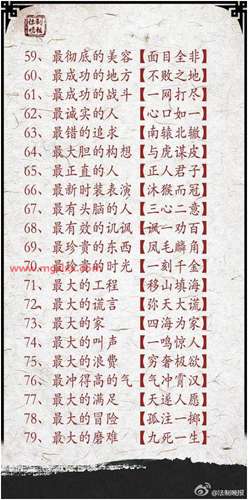 法制晚报
59、最彻底的美容【面目全非】
60、最成功的地方【不败之地】
61、最成功的战斗【一网打尽】
62、最诚实的人【心口如一】
63、最错的追求【南辕北辙】
64、最大胆的构想【与虎谋皮】
65、最正直的人【正人君子】
66、最新时装表演【沐猴而冠】
67、最有头脑的人【三心二意】
68、最有效的讥讽【诫一劝百】
69、最珍贵的东西【凤毛麟角】
70、最珍贵的时光【一刻千金】
71、最大的工程【移山填海】
72、最大的谎言【弥天大谎】
73、最大的家【四海为家】
74、最大的叫声【一鸣惊人】
75、最大的浪费【穷奢极欲】
76、最冲得高的气【气冲霄汉】
77、最大的满足【天遂人愿】
78、最大的冒险【孤注一掷】
79、最大的磨难【九死一生】
@法制晚报